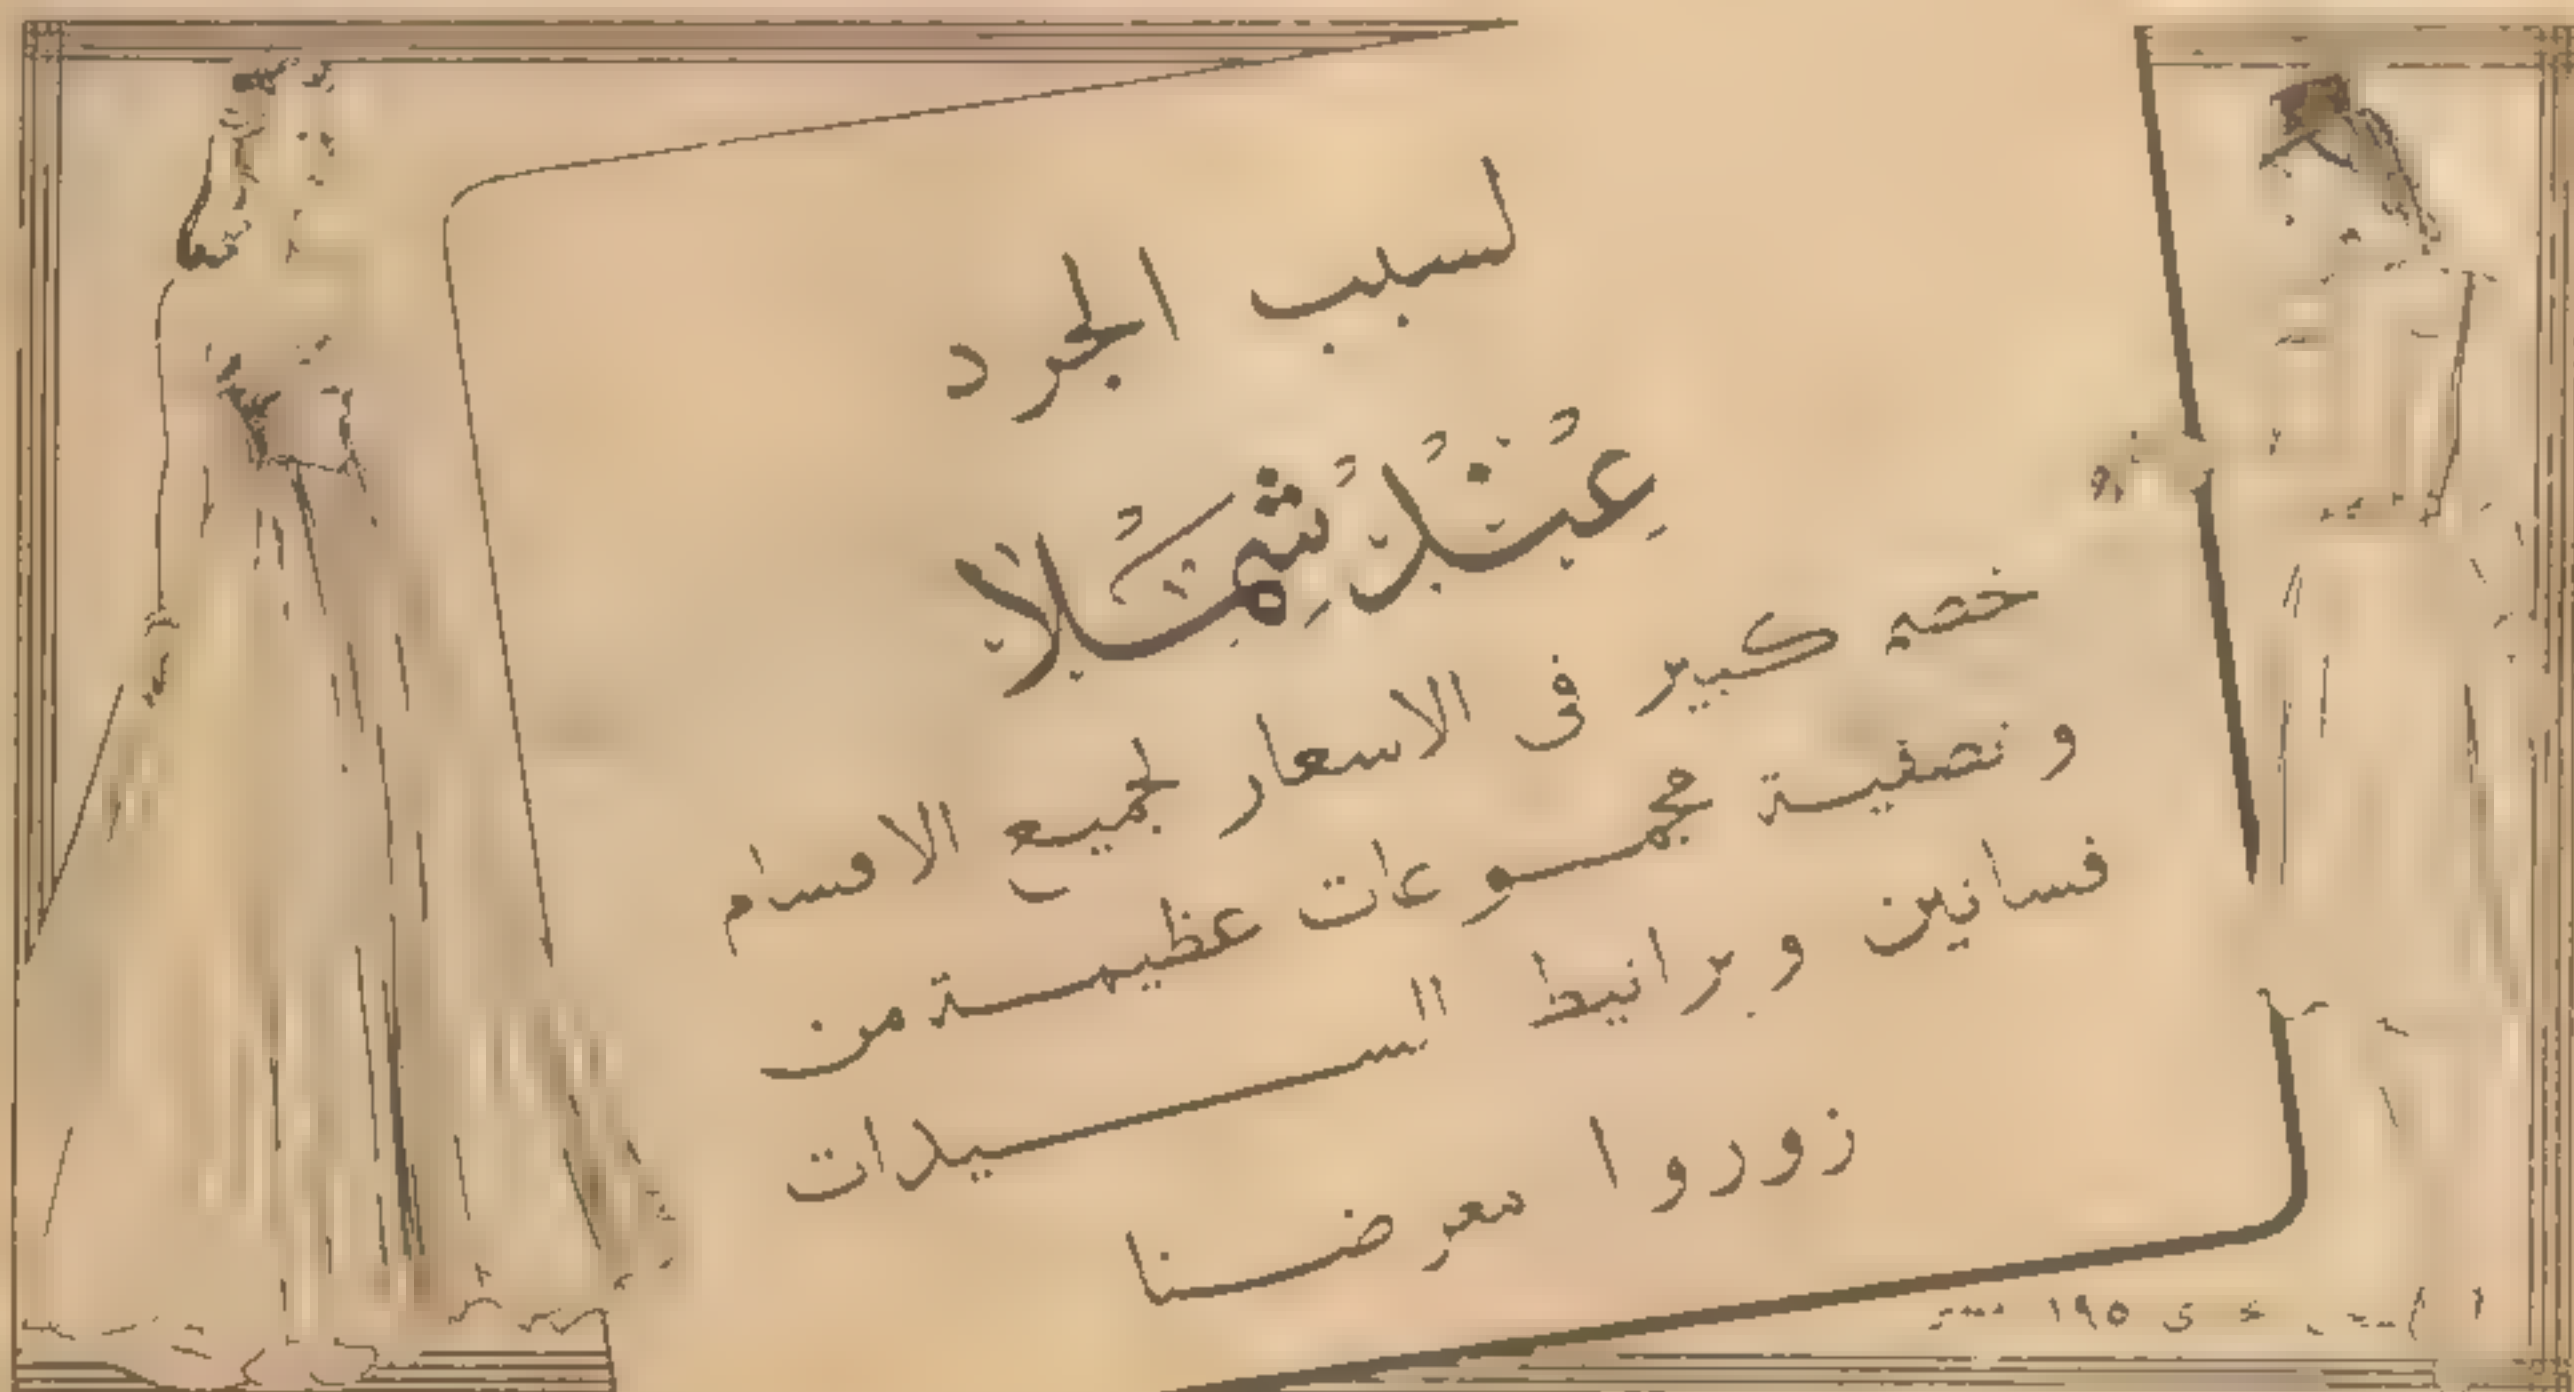 لسبب الجرد
عِنْدُ شِمَلاَ
خصم كبير فى الاسعار لجميع الاقسام
و نصفية مجموعات عظيمة من
فسانين وبرانيط السيدات
زوروا معرضنا